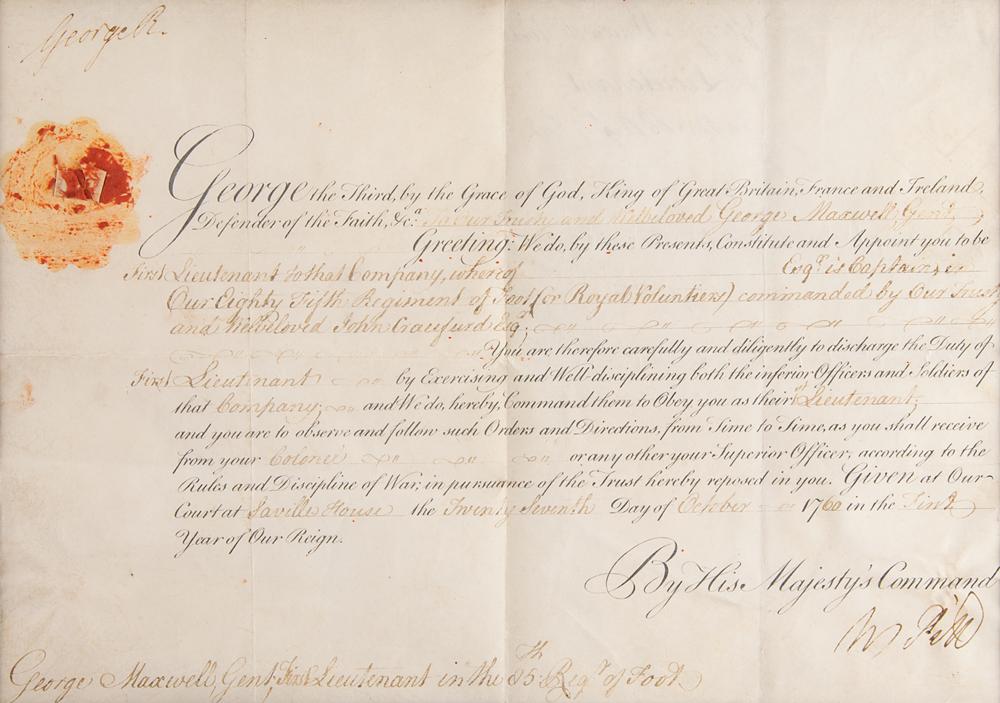 George R.
George the Third, by the Grace of God, King of Great Britain, France and Ireland,
Defender of the Faith, &c.a To Our Trusty and Welbeloved George Maxwell, Gent,
Greeting: We do, by these Presents, Constitute and Appoint you to be
First Lieutenant to that Company, whereof Esqr. is Captain, in
Our Eighty Fifth Regiment of Foot (or Royal Voluntiers) commanded by Our Trusty
and Welbeloved John Craufurd Esqr.
You are therefore carefully and diligently to discharge the Duty of
First Lieutenant by Exercising and Well-disciplining both the inferior Officers and Soldiers of
that Company; and We do, hereby, Command them to Obey you as their Lieutenant;
and you are to observe and follow such Orders and Directions, from Time to Time, as you shall receive
from your Colonel or any other your Superior Officer, according to the
Rules and Discipline of War, in pursuance of the Trust hereby reposed in you. Given at Our
Court at Saville House the Twenty Seventh Day of October 1760 in the First
Year of Our Reign.
By His Majesty's Command
W Pitt
George Maxwell, Gent, First Lieutenant in the 85th Regt. of Foot